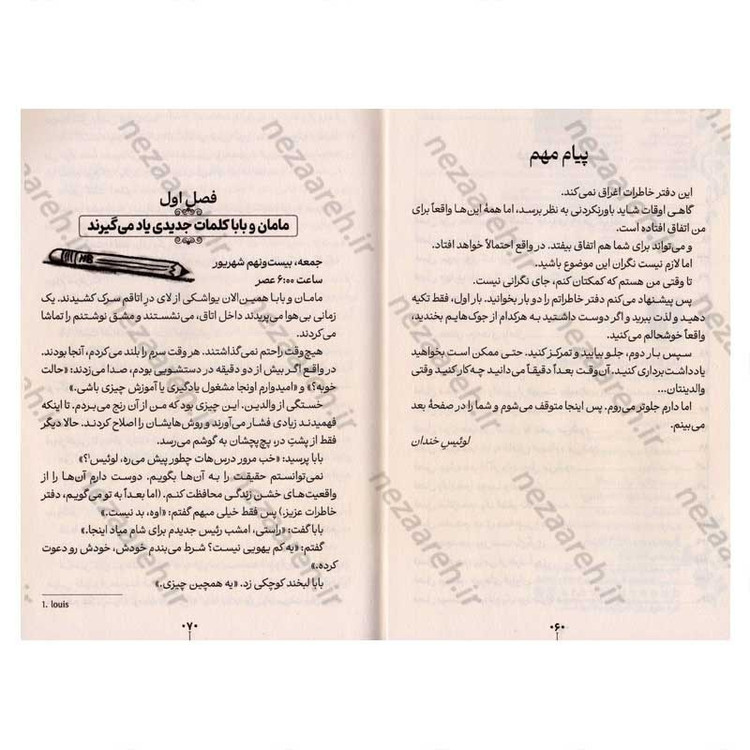 پیام مهم
این دفتر خاطرات اغراق نمی‌کند.
گاهی اوقات شاید باورنکردنی به نظر برسد، اما همهٔ این‌ها واقعاً برای
من اتفاق افتاده است.
و می‌تواند برای شما هم اتفاق بیفتد. در واقع احتمالاً خواهد افتاد.
اما لازم نیست نگران این موضوع باشید.
تا وقتی من هستم که کمکتان کنم، جای نگرانی نیست.
پس پیشنهاد می‌کنم دفتر خاطراتم را دو بار بخوانید. بار اول، فقط تکیه
دهید و لذت ببرید و اگر دوست داشتید به هرکدام از جوک‌هایم بخندید،
واقعاً خوشحالم می‌کنید.
سپس بار دوم، جلو بیایید و تمرکز کنید. حتی ممکن است بخواهید
یادداشت‌برداری کنید. آن‌وقت بعداً دقیقاً می‌دانید چه‌کار کنید وقتی
والدینتان...
اما دارم جلوتر می‌روم. پس اینجا متوقف می‌شوم و شما را در صفحهٔ بعد
می‌بینم.
لوئیسِ خندان
۰۶۰
فصل اول
مامان و بابا کلمات جدیدی یاد می‌گیرند
HB
جمعه، بیست‌ونهم شهریور
ساعت ۶:۰۰ عصر
مامان و بابا همین‌الان یواشکی از لای در اتاقم سرک کشیدند. یک
زمانی بی‌هوا می‌پریدند داخل اتاق، می‌نشستند و مشق نوشتنم را تماشا
می‌کردند.
هیچ‌وقت راحتم نمی‌گذاشتند. هر وقت سرم را بلند می‌کردم، آنجا بودند.
در واقع اگر بیش از دو دقیقه در دستشویی بودم، صدا می‌زدند: «حالت
خوبه؟» و «امیدوارم اونجا مشغول یادگیری یا آموزش چیزی باشی.»
خستگی از والدین. این چیزی بود که من از آن رنج می‌بردم. تا اینکه
فهمیدند زیادی فشار می‌آورند و روش‌هایشان را اصلاح کردند. حالا دیگر
فقط از پشتِ در، پچ‌پچشان به گوشم می‌رسد.
بابا پرسید: «خب مرور درس‌هات چطور پیش می‌ره، لوئیس۱؟»
نمی‌توانستم حقیقت را به آن‌ها بگویم. دوست دارم آن‌ها را از
واقعیت‌های خشن زندگی محافظت کنم. (اما بعداً به تو می‌گویم، دفتر
خاطرات عزیز.) پس فقط خیلی مبهم گفتم: «اوه، بد نیست.»
بابا گفت: «راستی، امشب رئیس جدیدم برای شام میاد اینجا.»
گفتم: «یه کم یهویی نیست؟ شرط می‌بندم خودش، خودش رو دعوت
کرده.»
بابا لبخند کوچکی زد. «یه همچین چیزی.»
1. louis
۰۷۰
nezaareh.ir